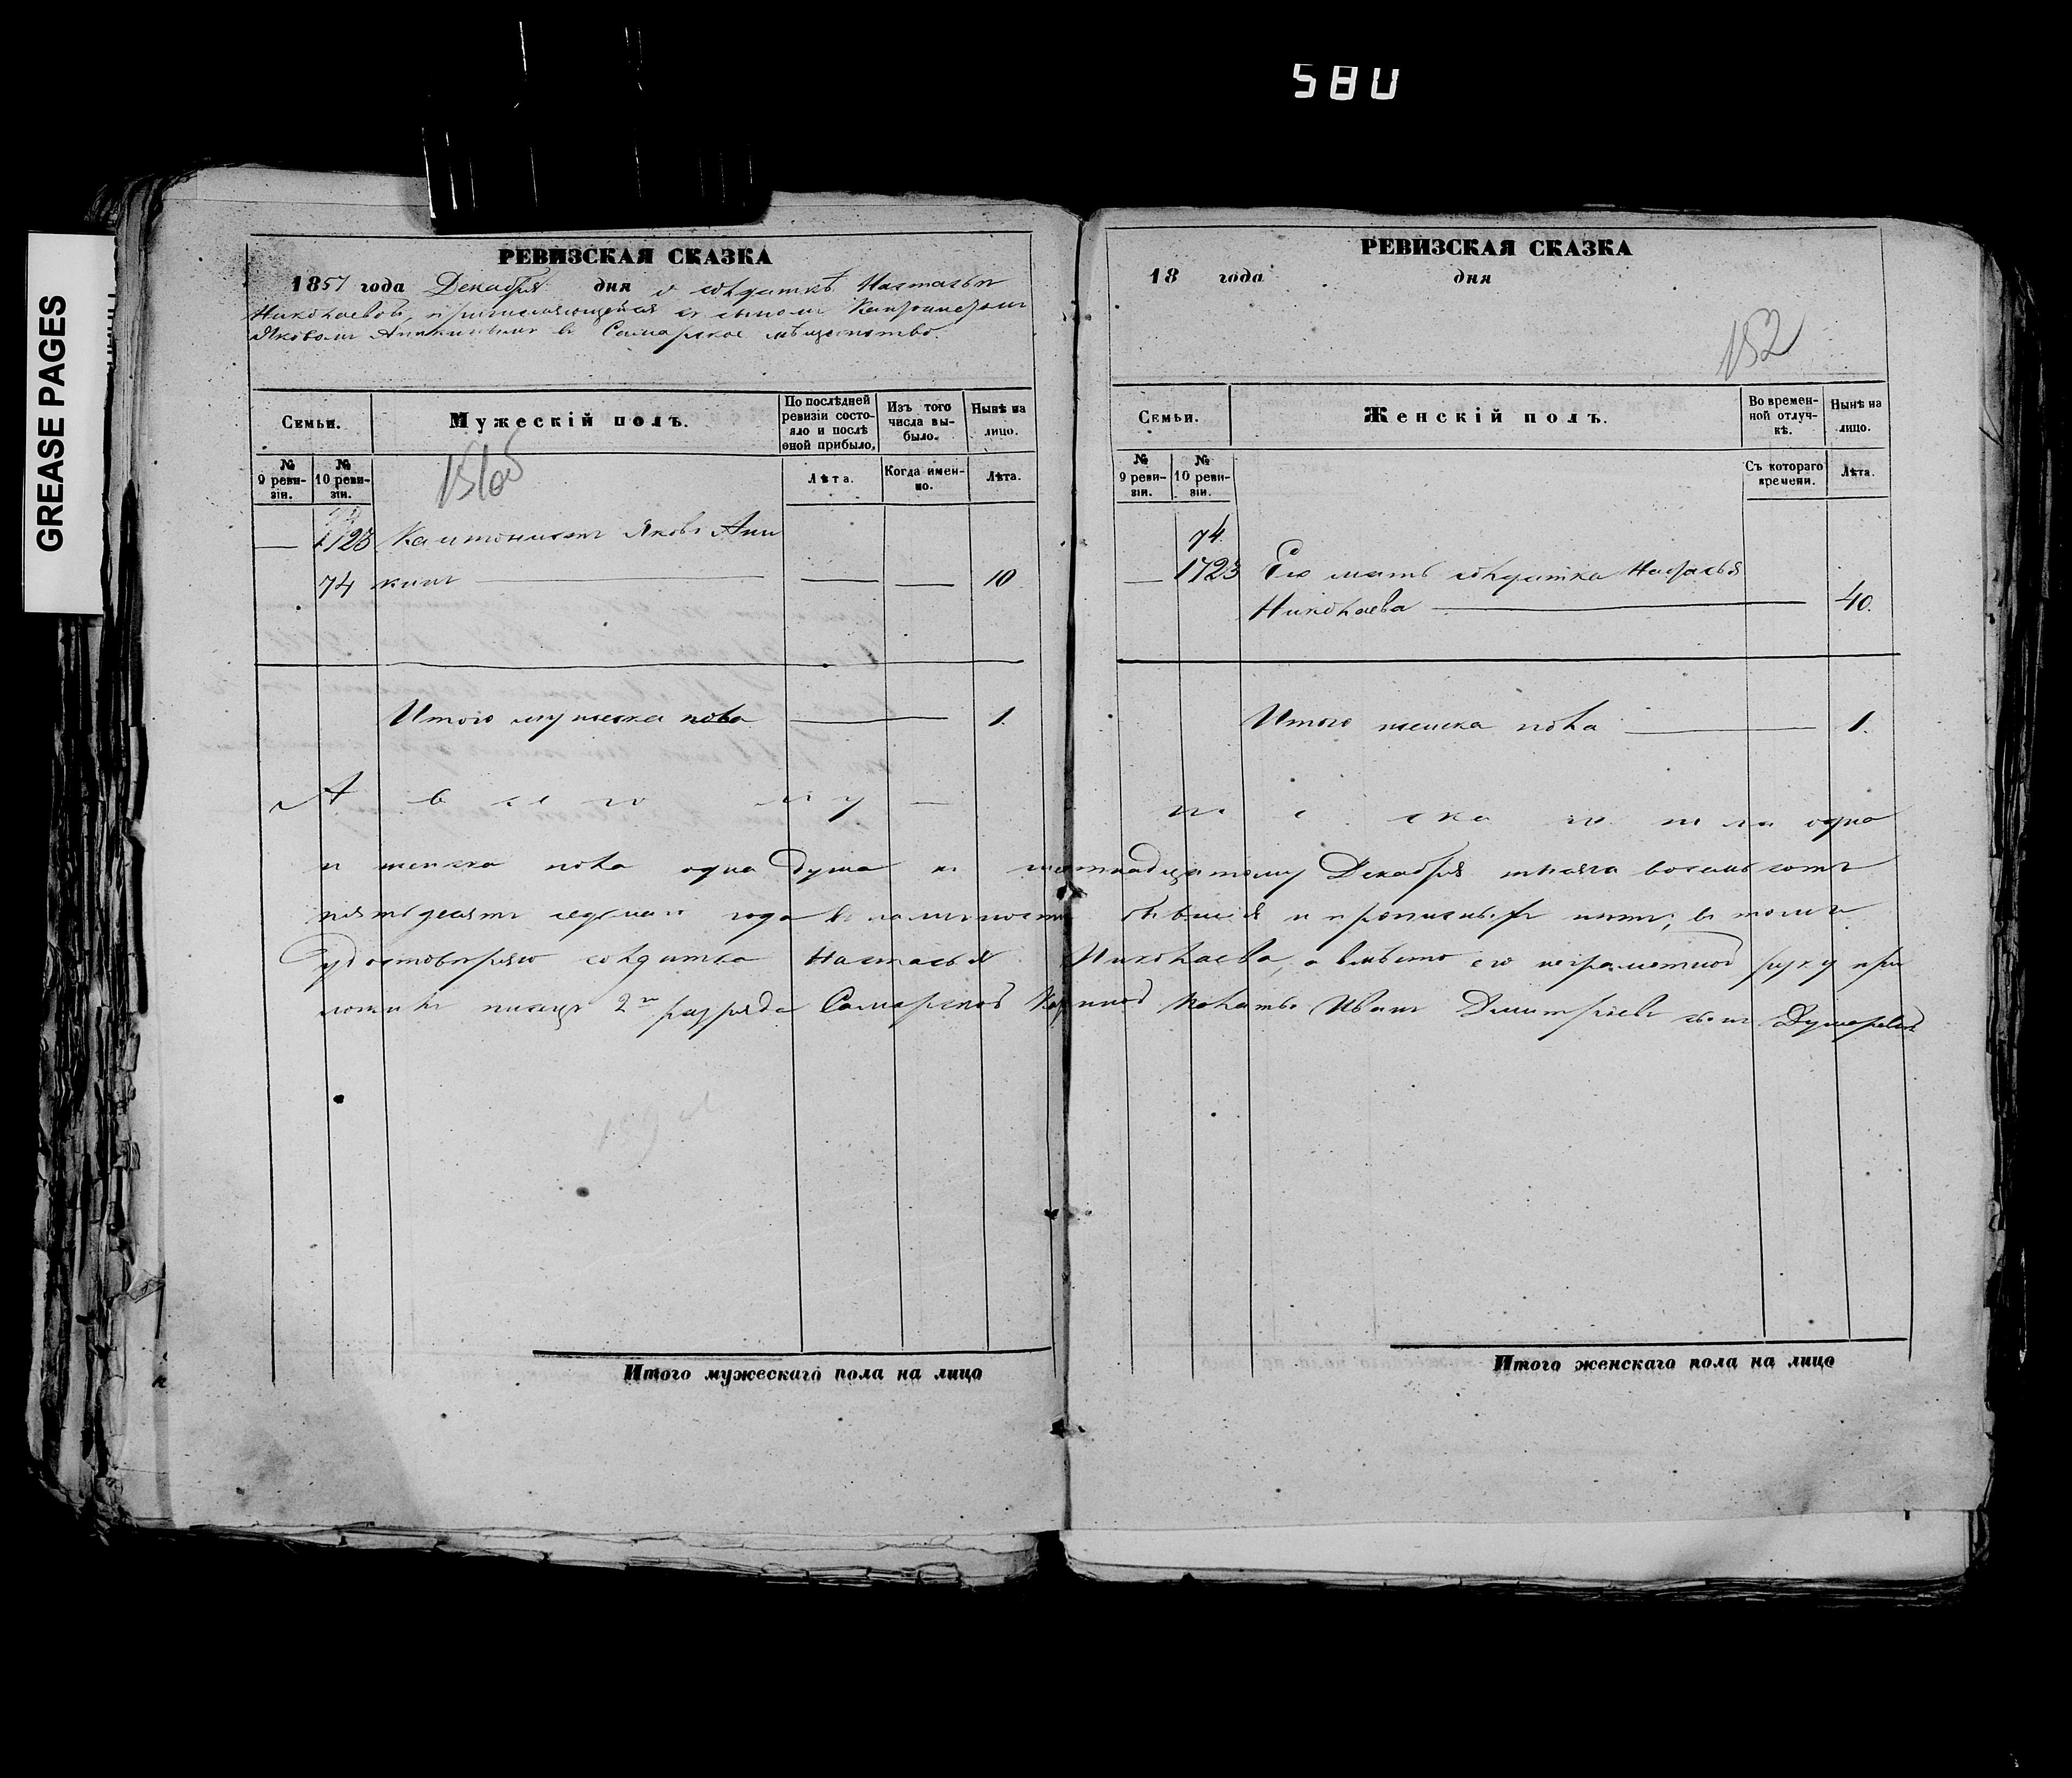 580
GREASE PAGES
РЕВИЗСКАЯ СКАЗКА
1857 года Декабря дня о солдаткѣ Настасьи
Николаевой, причисляющейся съ сыномъ
Яковомъ Аникинымъ въ Самарское мѣщанство.
Семьи.
Мужескій полъ.
По послѣдней ревизіи состояло и послѣ оной прибыло.
Изъ того числа выбыло.
Нынѣ на лицо.
№ 9 ревизіи.
№ 10 ревизіи.
Лѣта.
Когда именно.
Лѣта.
— 1723 Кантонистъ Яковъ Ани
74 кинъ — — — 10
Итого мужеска пола — 1.
Итого мужескаго пола на лицо
РЕВИЗСКАЯ СКАЗКА
18 года дня
152
Семьи.
Женскій полъ.
Во временной отлучкѣ.
Нынѣ на лицо.
№ 9 ревизіи.
№ 10 ревизіи.
Съ котораго времени.
Лѣта.
74
— 1723 Его мать солдатка Настасья
Николаева — 40.
Итого женска пола — 1.
А всего му — жеска пола одна
и женска пола одна душа къ шестнадцатому Декабря тысяча восемьсотъ
пятьдесятъ седьмаго года въ наличности бывшія и прописныхъ нѣтъ, въ томъ
удостовѣряю солдатка Настасья Николаева, а вмѣсто ея неграмотной руку при
ложилъ писецъ 2го разряда Самарской Казенной Палаты Иванъ Дмитріевъ сынъ
Итого женскаго пола на лицо